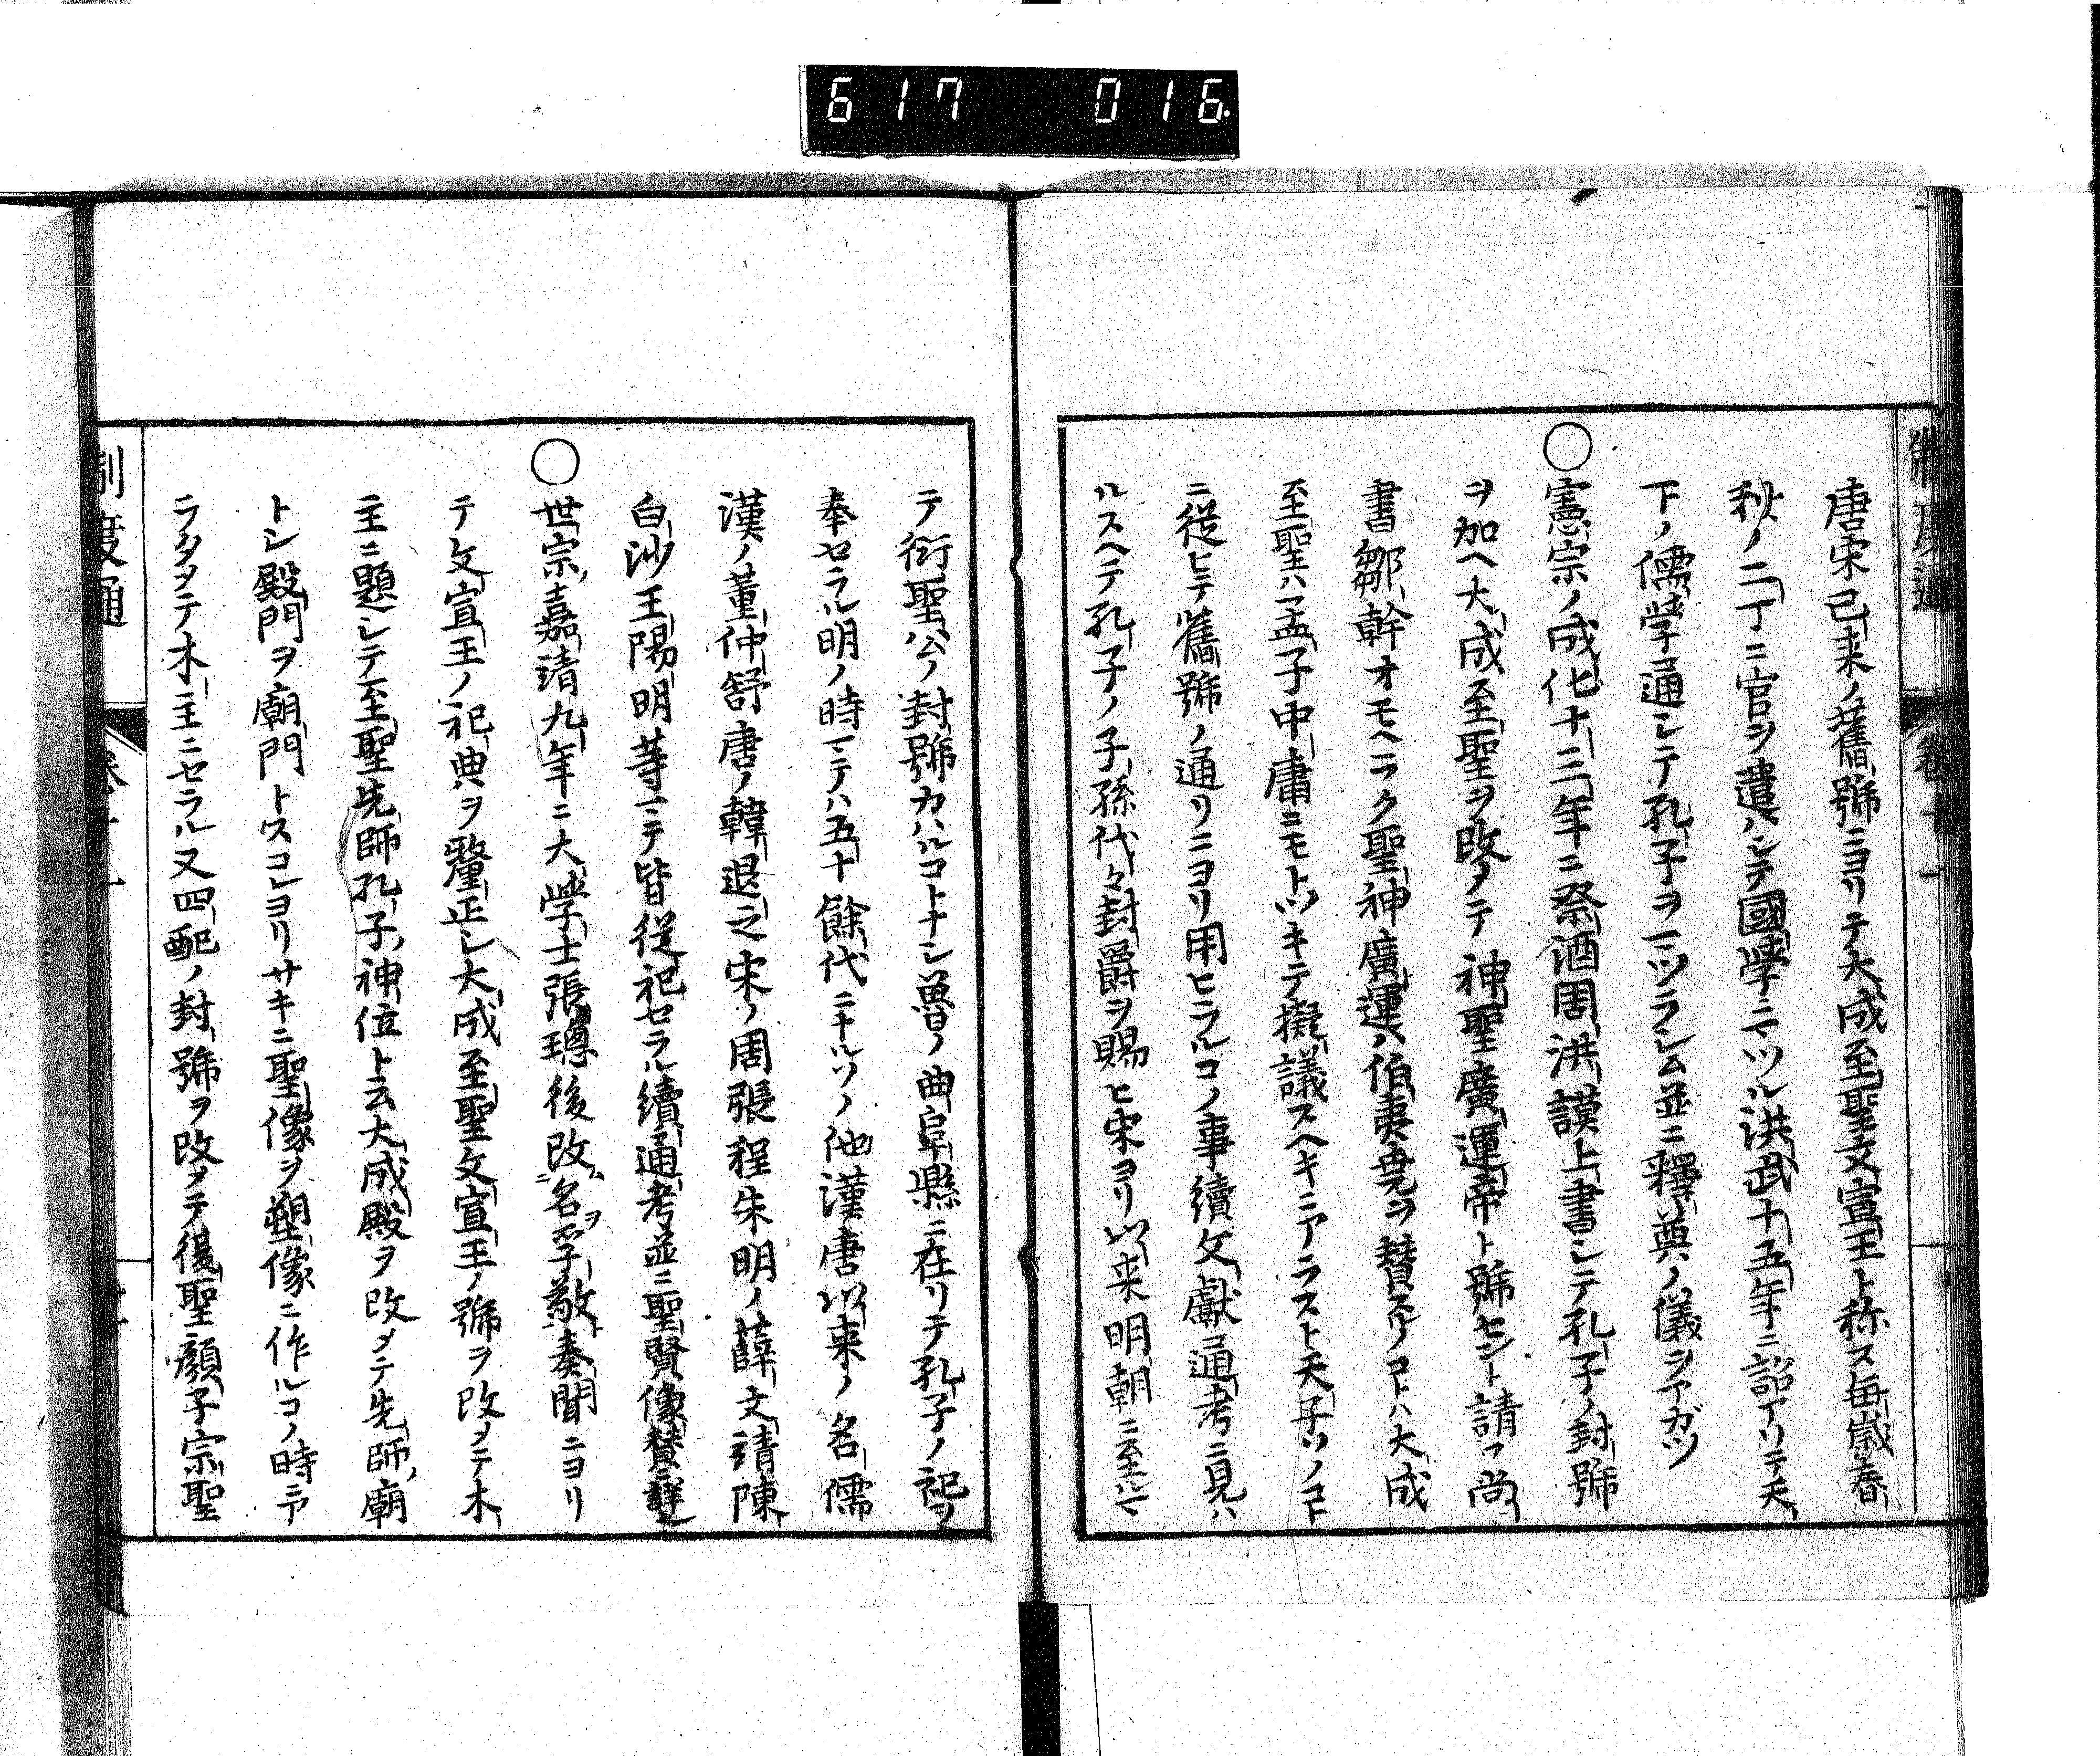 617 016
制度通 卷十一
唐宋已来ノ舊號ニヨリテ大成至聖文宣王ト称ス毎歳春
秋ノ二丁ニ官ヲ遣ハシテ國學ニマツル洪武十五年ニ詔アリテ天
下ノ儒学通シテ孔子ヲマツラシム並ニ釋奠ノ儀ヲアガツ
○憲宗ノ成化十三年ニ祭酒周洪謨上書シテ孔子ノ封號
ヲ加ヘ大成至聖ヲ改メテ神聖廣運帝ト號セント請フ尚
書鄒幹オモヘラク聖神廣運ハ伯夷尭ヲ賛スルノコトハ大成
至聖ハ孟子中庸ニモトツキテ擬議スヘキニアラスト天子ソノコト
ニ從ヒテ舊號ノ通リニヨリ用ヒラルコノ事續文獻通考ニ見ハ
ルスヘテ孔子ノ子孫代々封爵ヲ賜ヒ宋ヨリ以来明朝ニ至ルマ
テ衍聖公ノ封號カハルコトナシ魯ノ曲阜縣ニ在リテ孔子ノ祀ヲ
奉セラル明ノ時ニテハ五十餘代ニナルソノ他漢唐以来ノ名儒
漢ノ董仲舒唐ノ韓退之宋ノ周張程朱明ノ薛文清陳
白沙王陽明等ニテ皆従祀セラル續通考並ニ聖賢像賛ニ詳
○世宗嘉清九年ニ大学士張璁後改名ヲ孚敬奏聞ニヨリ
テ文宣王ノ祀典ヲ釐正シ大成至聖文宣王ノ號ヲ改メテ木
主ニ題シテ至聖先師孔子神位ト云大成殿ヲ改メテ先師廟
トシ殿門ヲ廟門トスコレヨリサキニ聖像ヲ塑像ニ作ルコノ時ニア
ラタメテ木主ニセラル又四配ノ封號ヲ改メテ復聖顔子宗聖
制度通 卷十一